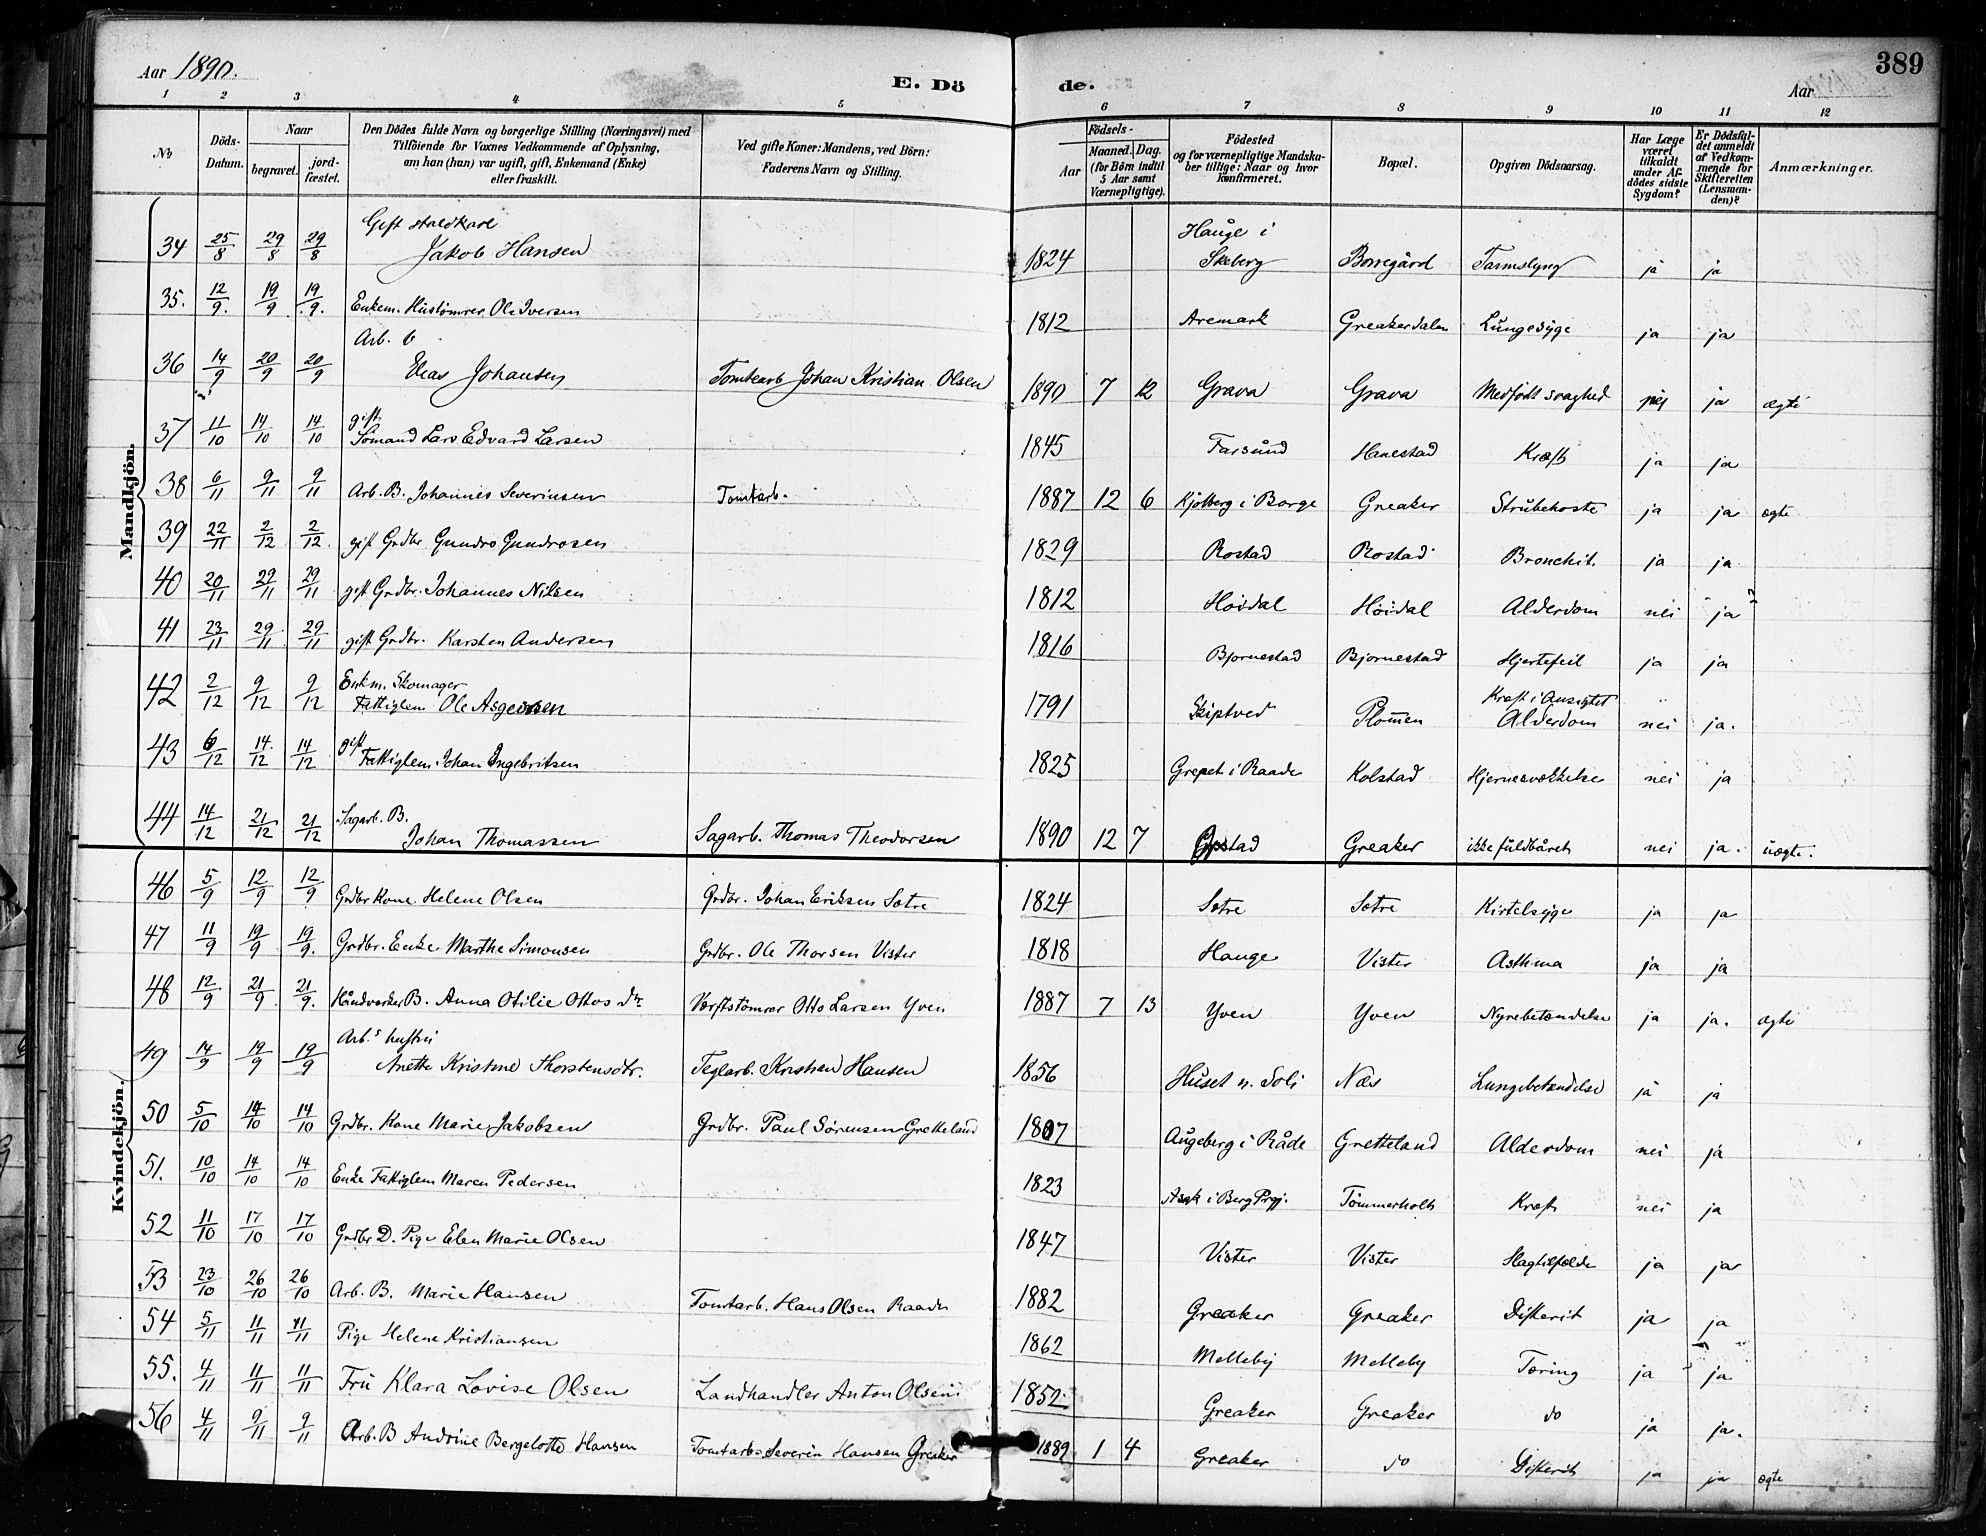 Aar 1890. E. Dö de. Aar 389
1 2 3 4 5 6 7 8 9 10 11 12
№ Döds-Datum. Naar begravet. jordfæstet. Den Dödes fulde Navn og borgerlige Stilling (Næringsvei) med Tilföiende for Voxnes Vedkommende af Oplysning, om han (hun) var ugift, gift, Enkemand (Enke) eller fraskilt. Ved gifte Koner: Mandens, ved Börn: Faderens Navn og Stilling. Födsels- Aar Maaned. Dag. (for Börn indtil 5 Aar samt Værnepligtige). Födested og for værnepligtige Mandskaber tillige: Naar og hvor konfirmeret. Bopæl. Opgiven Dödsaarsag. Har Læge været tilkaldt under Afdödes sidste Sygdom? Er Dödsfaldet anmeldt af Vedkommende for Skifteretten (Lensmanden)? Anmærkninger.
Mandkjön.
34 25/8 29/8 29/8 Gift staldkarl Jakob Hansen 1824 Hauge i Skeberg Borregård Tarmslyng ja ja
35. 12/9. 19/9 19/9. Enkem. Hustømrer Ole Iversen 1812 Aremark Greakerdalen Lungesyge ja ja
36 14/9 20/9 20/9 Arb. b Elias Johansen Tomtearb Johan Kristian Olsen 1890 7 12 Grava Grava Medfødt svaghed nej ja ægte
37 11/10 14/10 14/10 gift Sømand Lars Edvard Larsen 1845 Farsund Hanestad Kræft ja ja
38 6/11 9/11 9/11 Arb. B. Johannes Severinsen Tomtarb. 1887 12 6 Kjølberg i Borge Greaker Strubehoste ja ja ægte
39 22/11 2/12 2/12. gift Grdbr Gundro Gundrosen 1829 Rostad Rostad Bronchit. ja ja
40 20/11 29/11 29/11 gift Grdbr. Johannes Nilsen 1812 Høidal Høidal Alderdom nei ja
41 23/11 29/11 29/11 gift Grdbr. Karsten Andersen 1816 Bjornestad Bjornestad Hjertefeil ja ja
42 2/12 9/12 9/12 Enkm. Skomager Fattiglem Ole Asgersen 1791 Skiptved Plomen Kræft i Ansigtet Alderdom nei ja.
43 6/12 14/12 14/12 gift Fattiglem. Johan Ingebritsen 1825 Grepet i Raade Kolstad Hjernesvækkelse nei ja
44 14/12 21/12 21/12 Sagarb. B. Johan Thomassen Sagarb. Thomas Theodorsen 1890 12 7 Opstad Greaker ikke fuldbåret nei ja. uægte.
Kvindekjön.
46 5/9 12/9 12/9 Grdbr Kone Helene Olsen Grdbr. Johan Eriksen Sætre 1824 Sætre Sætre Kirtelsyge ja ja
47 11/9 19/9 19/9. Grdbr. Enke Marthe Simonsen Grdbr. Ole Thorsen Vister 1818 Hauge Vister Asthma ja ja
48 12/9 21/9 21/9. Håndværker B. Anna Otilie Ottos dtr. Værftstømrer Otto Larsen Yven 1887 7 13 Yven Yven Nyrebetændelse ja ja. ægte
49 14/9 19/9 19/9 Arb.s hustru Anette Kristine Thorstensdtr. Teglarb. Kristian Hansen 1856 Huset u. Soli Næs Lungebetændelse ja ja
50 5/10 14/10 14/10 Grdbr. Kone Marie Jakobsen Grdbr. Paul Sørensen Gretteland 1807 Augeberg i Råde Gretteland Alderdom nei ja
51. 10/10 14/10 14/10 Enke Fattiglem Maren Pedersen 1823 Asak i Berg Prgj. Tømmerholt Kræft nei ja
52 11/10 17/10 17/10 Grdbr D. Pige Elen Marie Olsen 1847 Vister Vister Slagtilfælde ja ja
53 23/10 26/10 26/10 Arb. B. Marie Hansen Tomtarb. Hans Olsen Raade 1882 Greaker Greaker Difterit ja ja
54 5/11 11/11 11/11 Pige Helene Kristiansen 1862 Melleby Melleby Tæring ja ja
55. 4/11 11/11 11/11 Fru Klara Lovise Olsen Landhandler Anton Olsen 1852 Greaker Greaker do ja ja.
56 4/11 9/11 9/11 Arb. B Andrine Bergelotte Hansen Tomtarb. Severin Hansen Greaker 1889 1 4 Greaker do Difterit ja ja ægte